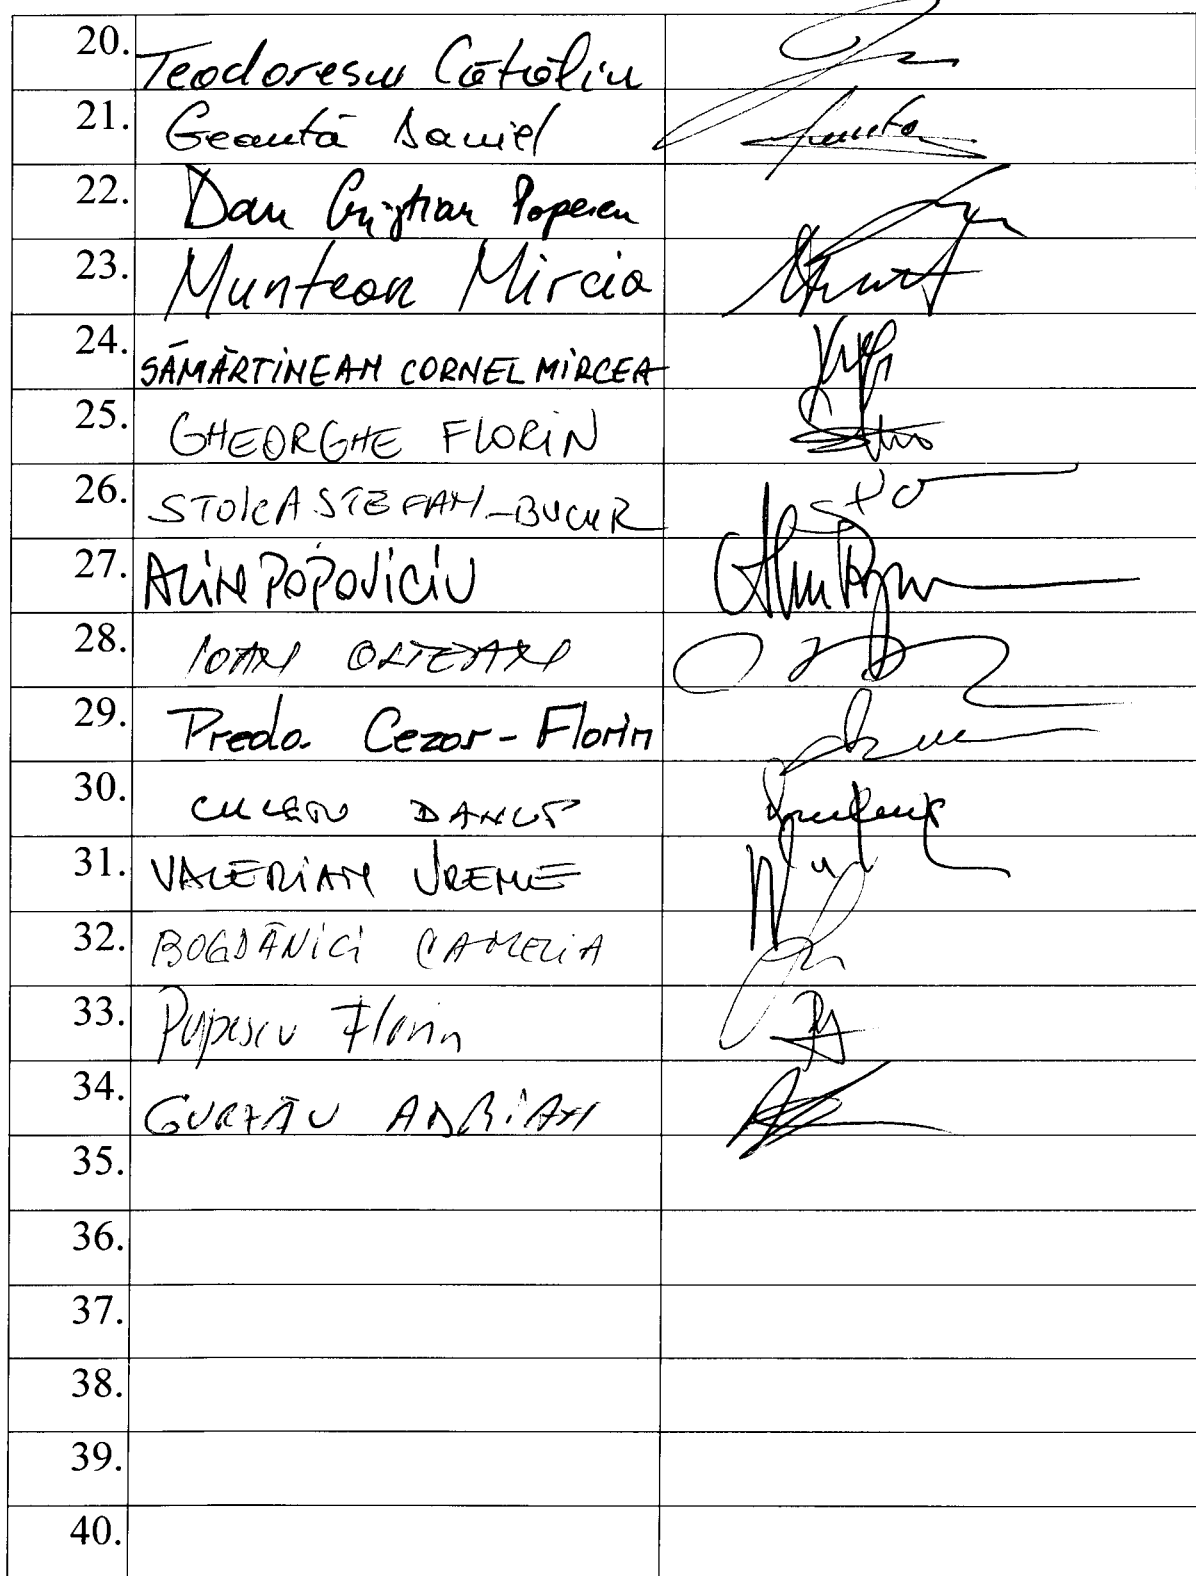 20. Teodorescu Cătălin
21. Geantă Daniel
22. Dan Cristian Popescu
23. Muntean Mircia
24. SĂMĂRTINEAN CORNEL MIRCEA
25. GHEORGHE FLORIN
26. STOICA STEFAN-BUCUR
27. ALIN POPOVICIU
28. IOAN OLTEAN
29. Preda Cezar-Florin
30. DANUT
31. VALERIAN VREME
32. BOGDĂNICI CAMELIA
33. Popescu Florin
34. GURZĂU ADRIAN
35.
36.
37.
38.
39.
40.